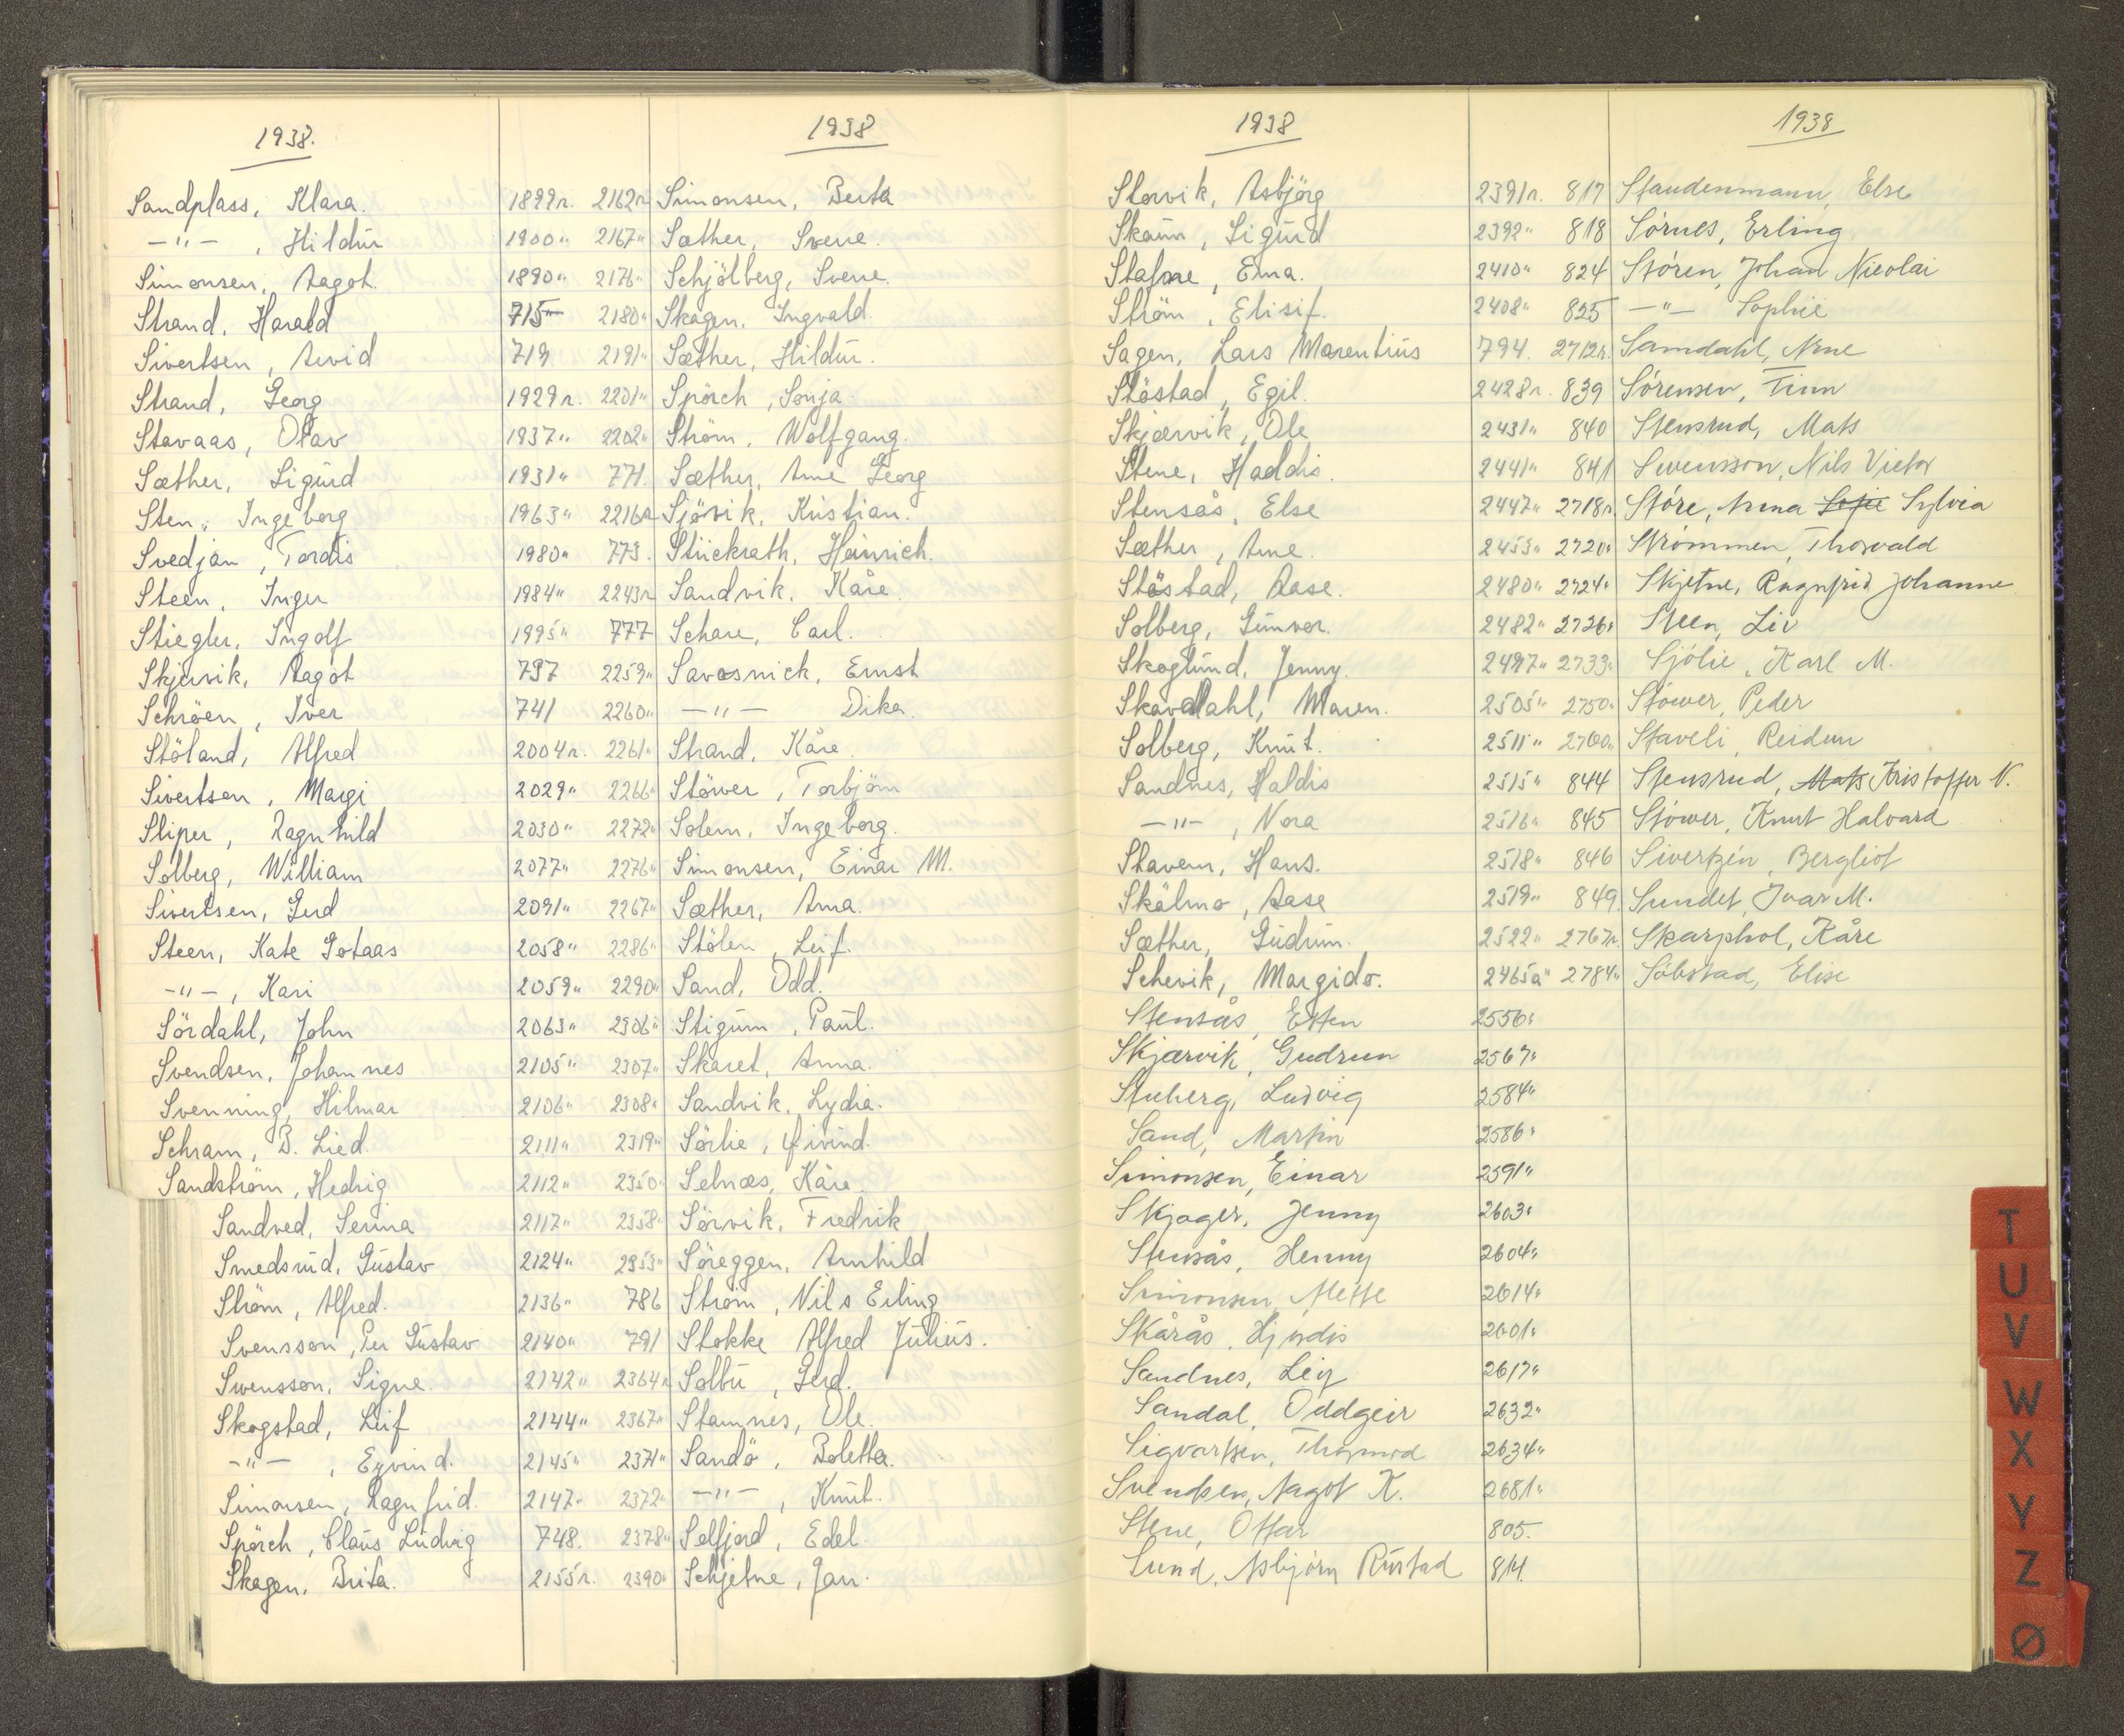 1938.
Sandplass, Klara. 1899n.
-"- , Hildur 1900"
Simonsen, Aagot. 1890"
Strand, Harald 715
Sivertsen, Arvid 719
Strand, Georg 1929n.
Stavaas, Olav 1937"
Sæther, Sigurd 1931"
Sten, Ingeborg 1963"
Svedjan, Tordis 1980"
Steen, Inger 1984"
Stiegler, Ingolf 1995"
Skjervik, Aagot 797
Schröen, Iver 741
Stöland, Alfred 2004n.
Sivertsen, Margi 2029"
Sliper, Ragnhild 2030"
Solberg, William 2077"
Sivertsen, Gerd 2091"
Steen, Kate Gotaas 2058"
-"- , Kari 2059"
Sördahl, John 2063"
Svendsen, Johannes 2105"
Svenning, Hilmar 2106"
Schram, B. Lied. 2111"
Sandström, Hedvig 2112"
Sandved, Serina 2117"
Smedsrud, Gustav 2124"
Ström, Alfred. 2136"
Svensson, Per Gustav 2140"
Swensson, Signe. 2142"
Skogstad, Leif 2144"
-"- , Eyvind. 2145"
Simonsen, Ragnfrid. 2147"
Spörch, Claus Ludvig 748.
Skagen, Brita. 2155n.
1938
2162n Simonsen, Berta
2167" Sæther, Sverre.
2176" Schjölberg, Sverre.
2180" Skagen, Ingvald.
2191" Sæther, Hildur.
2201" Spörch, Sonja
2202" Ström, Wolfgang.
771. Sæther, Arne Georg
2216n Sjövik, Kristian.
773. Stückrath, Heinrich.
2243n Sandvik, Kåre.
777 Schare, Carl.
2259" Savosnick, Ernst
2260" -"- Dika.
2261" Strand, Kåre.
2266" Stöwer, Torbjörn
2272" Solem, Ingeborg.
2276" Simonsen, Einar M.
2267" Sæther, Anna.
2286" Stölen, Leif.
2290" Sand, Odd.
2306" Stigum, Paul.
2307" Skaret, Anna.
2308" Sandvik, Lydia.
2319" Sörlie, Eivind.
2350" Selnæs, Kåre.
2358" Sörvik, Fredrik
2353" Söreggen, Arnhild
786 Ström, Nils Erling
791 Stokke Alfred Julius.
2364n Solbu, Gerd.
2367" Stamnes, Ole.
2371" Sandö, Boletta.
2372" -"- , Knut.
2378" Selfjord, Edel.
2390" Schjetne, Jan.
1938
Storvik, Asbjörg 2391n.
Skaun, Sigurd 2392"
Stafne, Erna. 2410"
Ström, Elisif. 2408"
Sagen, Lars Marentius 794.
Stöstad, Egil. 2428n.
Skjærvik, Ole 2431"
Stene, Haddis. 2441"
Stensås, Else 2447"
Sæther, Arne. 2453"
Stöstad, Aase. 2480"
Solberg, Gunvor. 2482"
Skoglund, Jenny. 2497"
Skavdahl, Maren. 2505"
Solberg, Knut. 2511"
Sandnes, Haldis 2515"
-"- , Nora 2516"
Stavem, Hans. 2518"
Skålmo, Aase 2519"
Sæther, Gudrun. 2522"
Schevik, Margido. 2465a"
Stensås, Esten 2556"
Skjærvik, Gudrun 2567"
Stuberg, Ludvig 2584"
Sand, Martin 2586"
Simonsen, Einar 2591"
Skjager, Jenny 2603"
Stensås, Henny 2604"
Simonsen, Mette 2614"
Skårås, Hjördis 2601"
Sandnes, Leif 2617"
Sandal, Oddgeir 2632"
Sigvartsen, Thormod 2634"
Svendsen, Aagot K. 2681"
Stene, Ottar 805.
Sund, Asbjörn Rustad 814.
1938
817 Staudenmann, Else
818 Sórnes, Erling
824 Stóren, Johan Nicolai
825 -"- Sophie
2712n. Samdahl, Arne
839 Sórensen, Finn
840 Stensrud, Mats
841 Swensson, Nils Victor
2718n. Stóre, Anna Sofie Sylvia
2720" Strömmen, Thorvald
2724" Skjetne, Ragnfrid Johanne
2726" Steen, Liv
2733" Sjólie, Karl M.
2750" Stówer, Peder
2760" Staveli, Reidun
844 Stensrud, Mats Kristoffer N.
845 Stówer, Knut Halvard
846 Sivertzén, Bergliot
849. Sundet, Ivar M.
2767n. Skarphol, Kåre
2784" Sóbstad, Elise
T
U
V
W
X
Y
Z
Ø